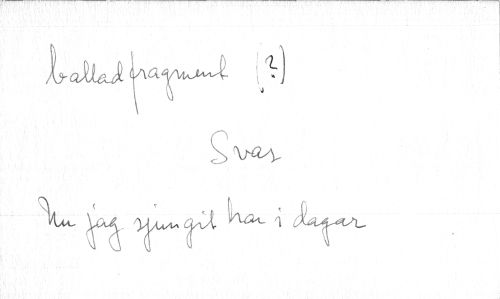 balladfragment (?)
Svar
Nu jag sjungit har i dagar